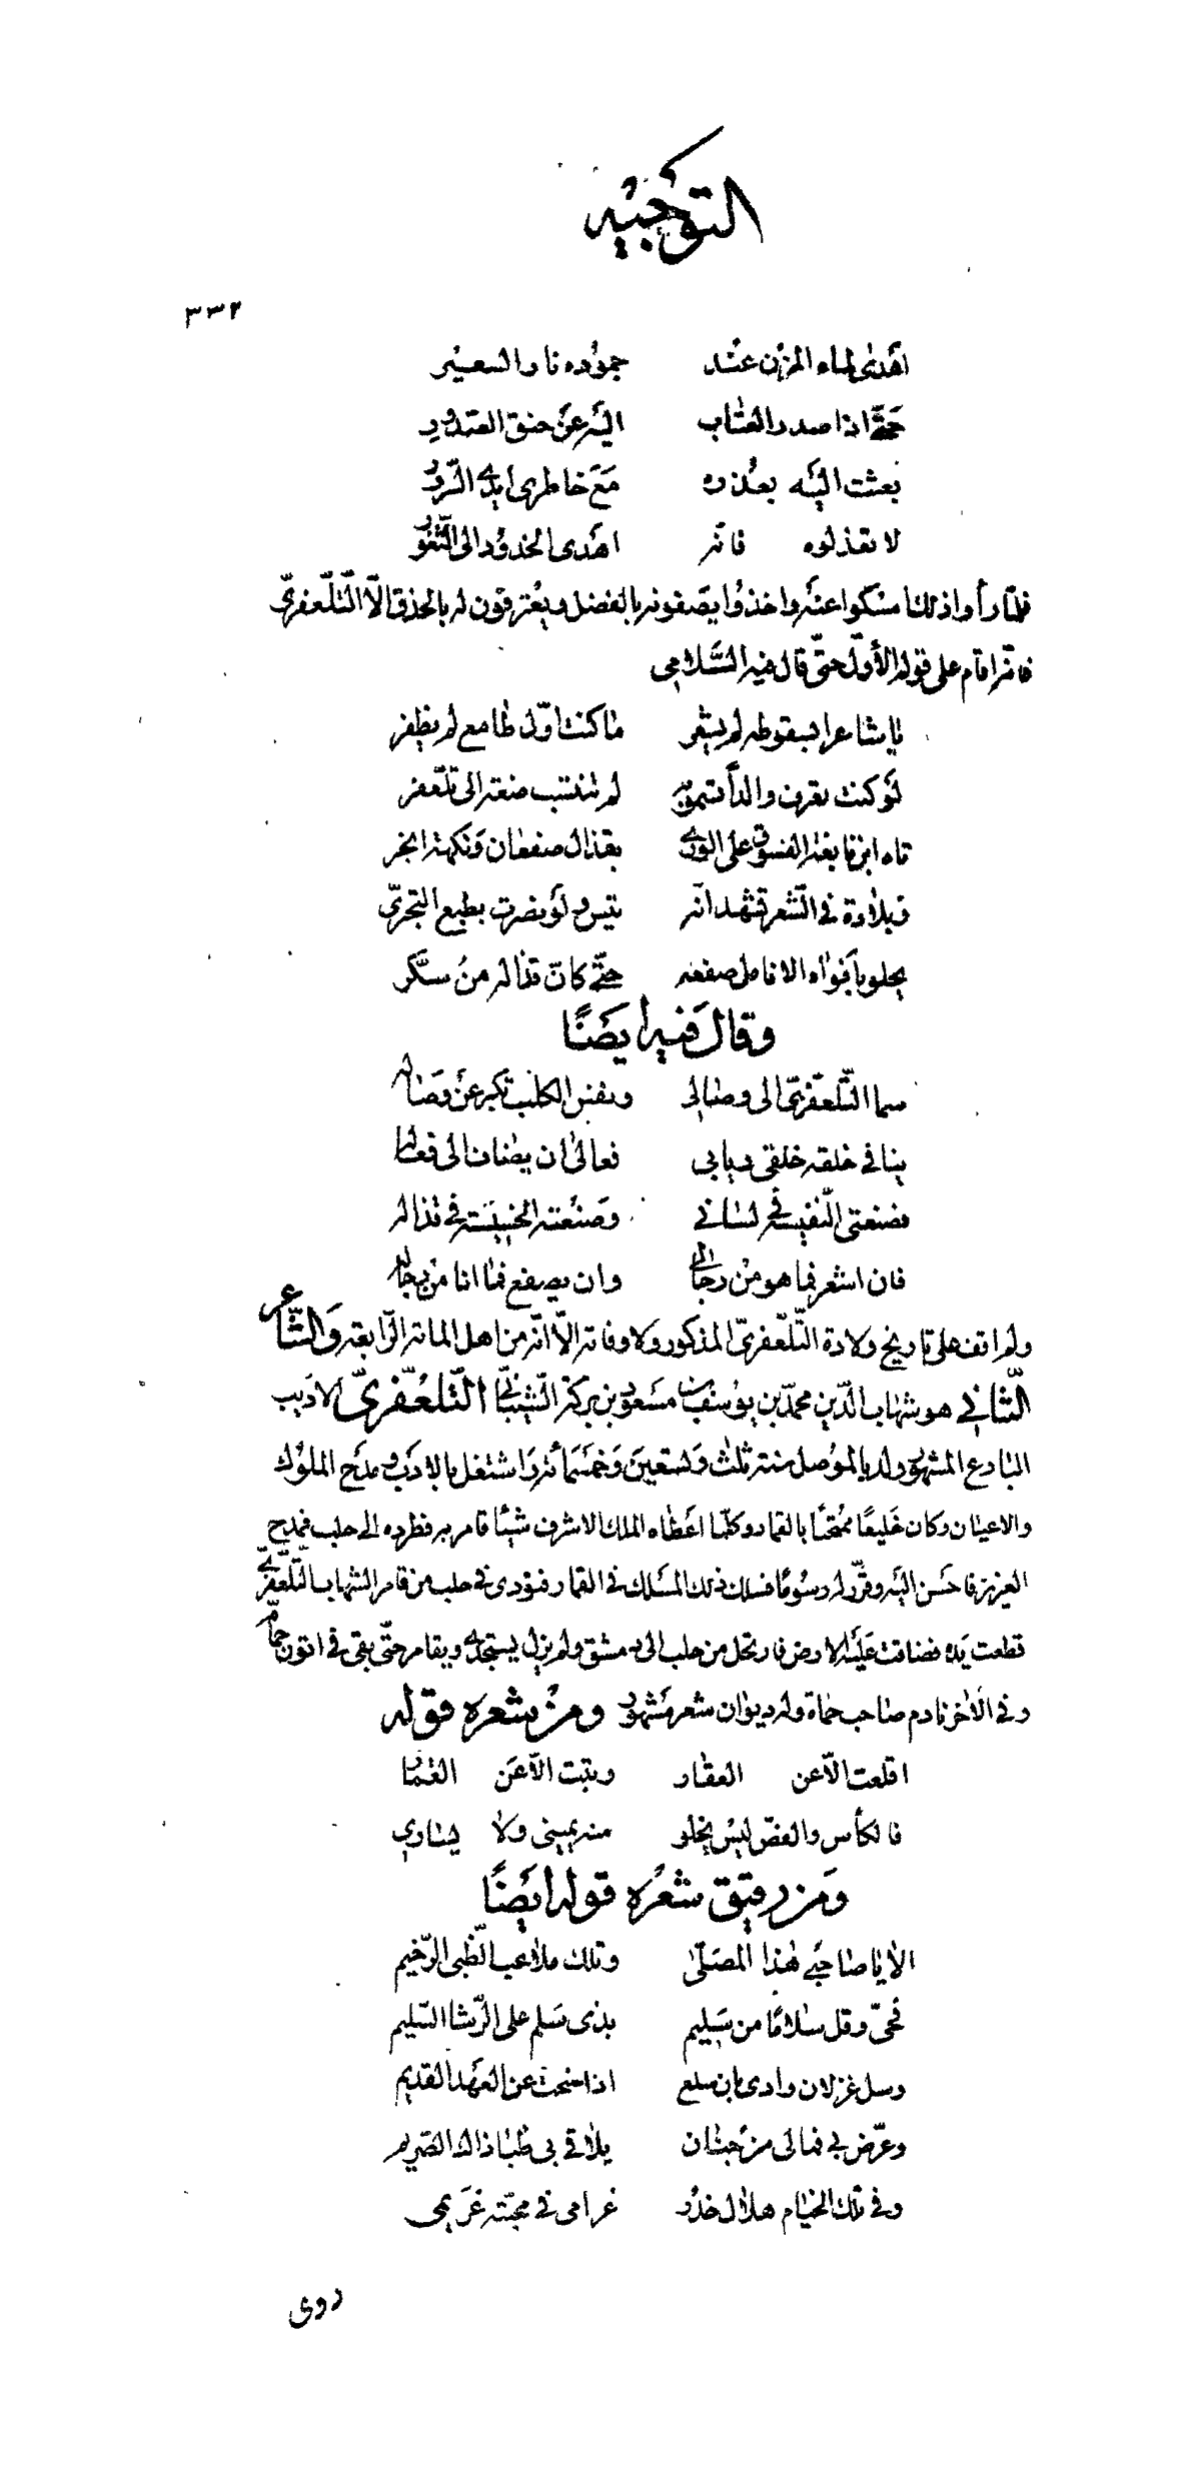 التوجيه
٣٣٢
اهدى لماء المزن عند جموده نار السعير
حتى اذا صدر العتاب اليه عن حنق الصدور
بعثت اليه بعذره مع خاطرى ايدى السرور
لا تعذلوه فانه اهدى الخدود الى الثغور
فلمّا رأوا ذلك امسكوا عنه واخذوا يصفونه بالفضل ويعترفون له بالحذق الّا التّلّعفرىّ
فانّه اقام على قوله الأوّل حتّى قال فيه السّلامى
يا شاعرا بسقوطه لم يشعر ما كنت اوّل طامع لم يظفر
لو كنت تعرف والدا تسمو به لم تنتسب ضعة الى تلّعفر
تاه ابن نابغة الفسوق على الورى بقذال صفعان ونكهة ابخر
وبلادة فى الشعر تشهد انّه تيس ولو نصرت بطبع البحترىّ
يحلو بأفواه الانامل صفعه حتّى كانّ قذاله من سكّر
وقال فيه ايضًا
سما التّلّعفرىّ الى وصالى ونفس الكلب تكبر عن وصاله
ينافى خلقه خلقى ويابى فعالى ان يضاف الى فعاله
فصنعتى النّفيسة فى لسانى وصنعته الخسيسة فى قذاله
فان اشعر فما هو من رجالى وان يصفع فما انا من رجاله
ولم اقف على تاريخ ولادة التّلّعفرىّ المذكور ولا وفاته الّا انّه من اهل المائة الرّابعة والشّاعر
الثّانى هو شهاب الدّين محمّد بن يوسف بن مسعود بن بركة الشّيبانىّ التّلّعفرىّ الاديب
البارع المشهور ولد بالموصل سنة ثلث وتسعين وخمسمائة واشتغل بالادب ومدح الملوك
والاعيان وكان خليعًا ممتحنًا بالقمار وكلّما اعطاه الملك الاشرف شيئًا قامر به فطرده الى حلب فمدح
العزيز فاحسن اليه وقرّر له رسومًا فسلك ذلك المسلك فى القمار فنودى فى حلب من قامر الشهاب التّلّعفرىّ
قطعت يده فضاقت عليه الارض فارتحل من حلب الى دمشق ولم يزل يستجدى ويقامر حتّى بقى فى اتون حمّام
وفى الاخر نادم صاحب حماة وله ديوان شعر مشهور ومن شعره قوله
اقلعت الّا عن العقار وتبت الّا عن القمار
فالكأس والفصّ ليس يخلو منه يمينى ولا يسارى
ومن رقيق شعره قوله ايضًا
الا يا صاحبى هذا المصلّى وتلك ملاعب الظّبى الرّخيم
فحىّ وقل سلامًا من سليم بذى سلم على الرّشا السّليم
وسل غزلان وادى بان سلع اذا سنحت عن العهد القديم
وعرّض بى فمالى من جنان يلاقى بى ظبا ذاك الصّريم
وفى تلك الخيام هلال خدر غرامى فى محبّته غريمى
روى